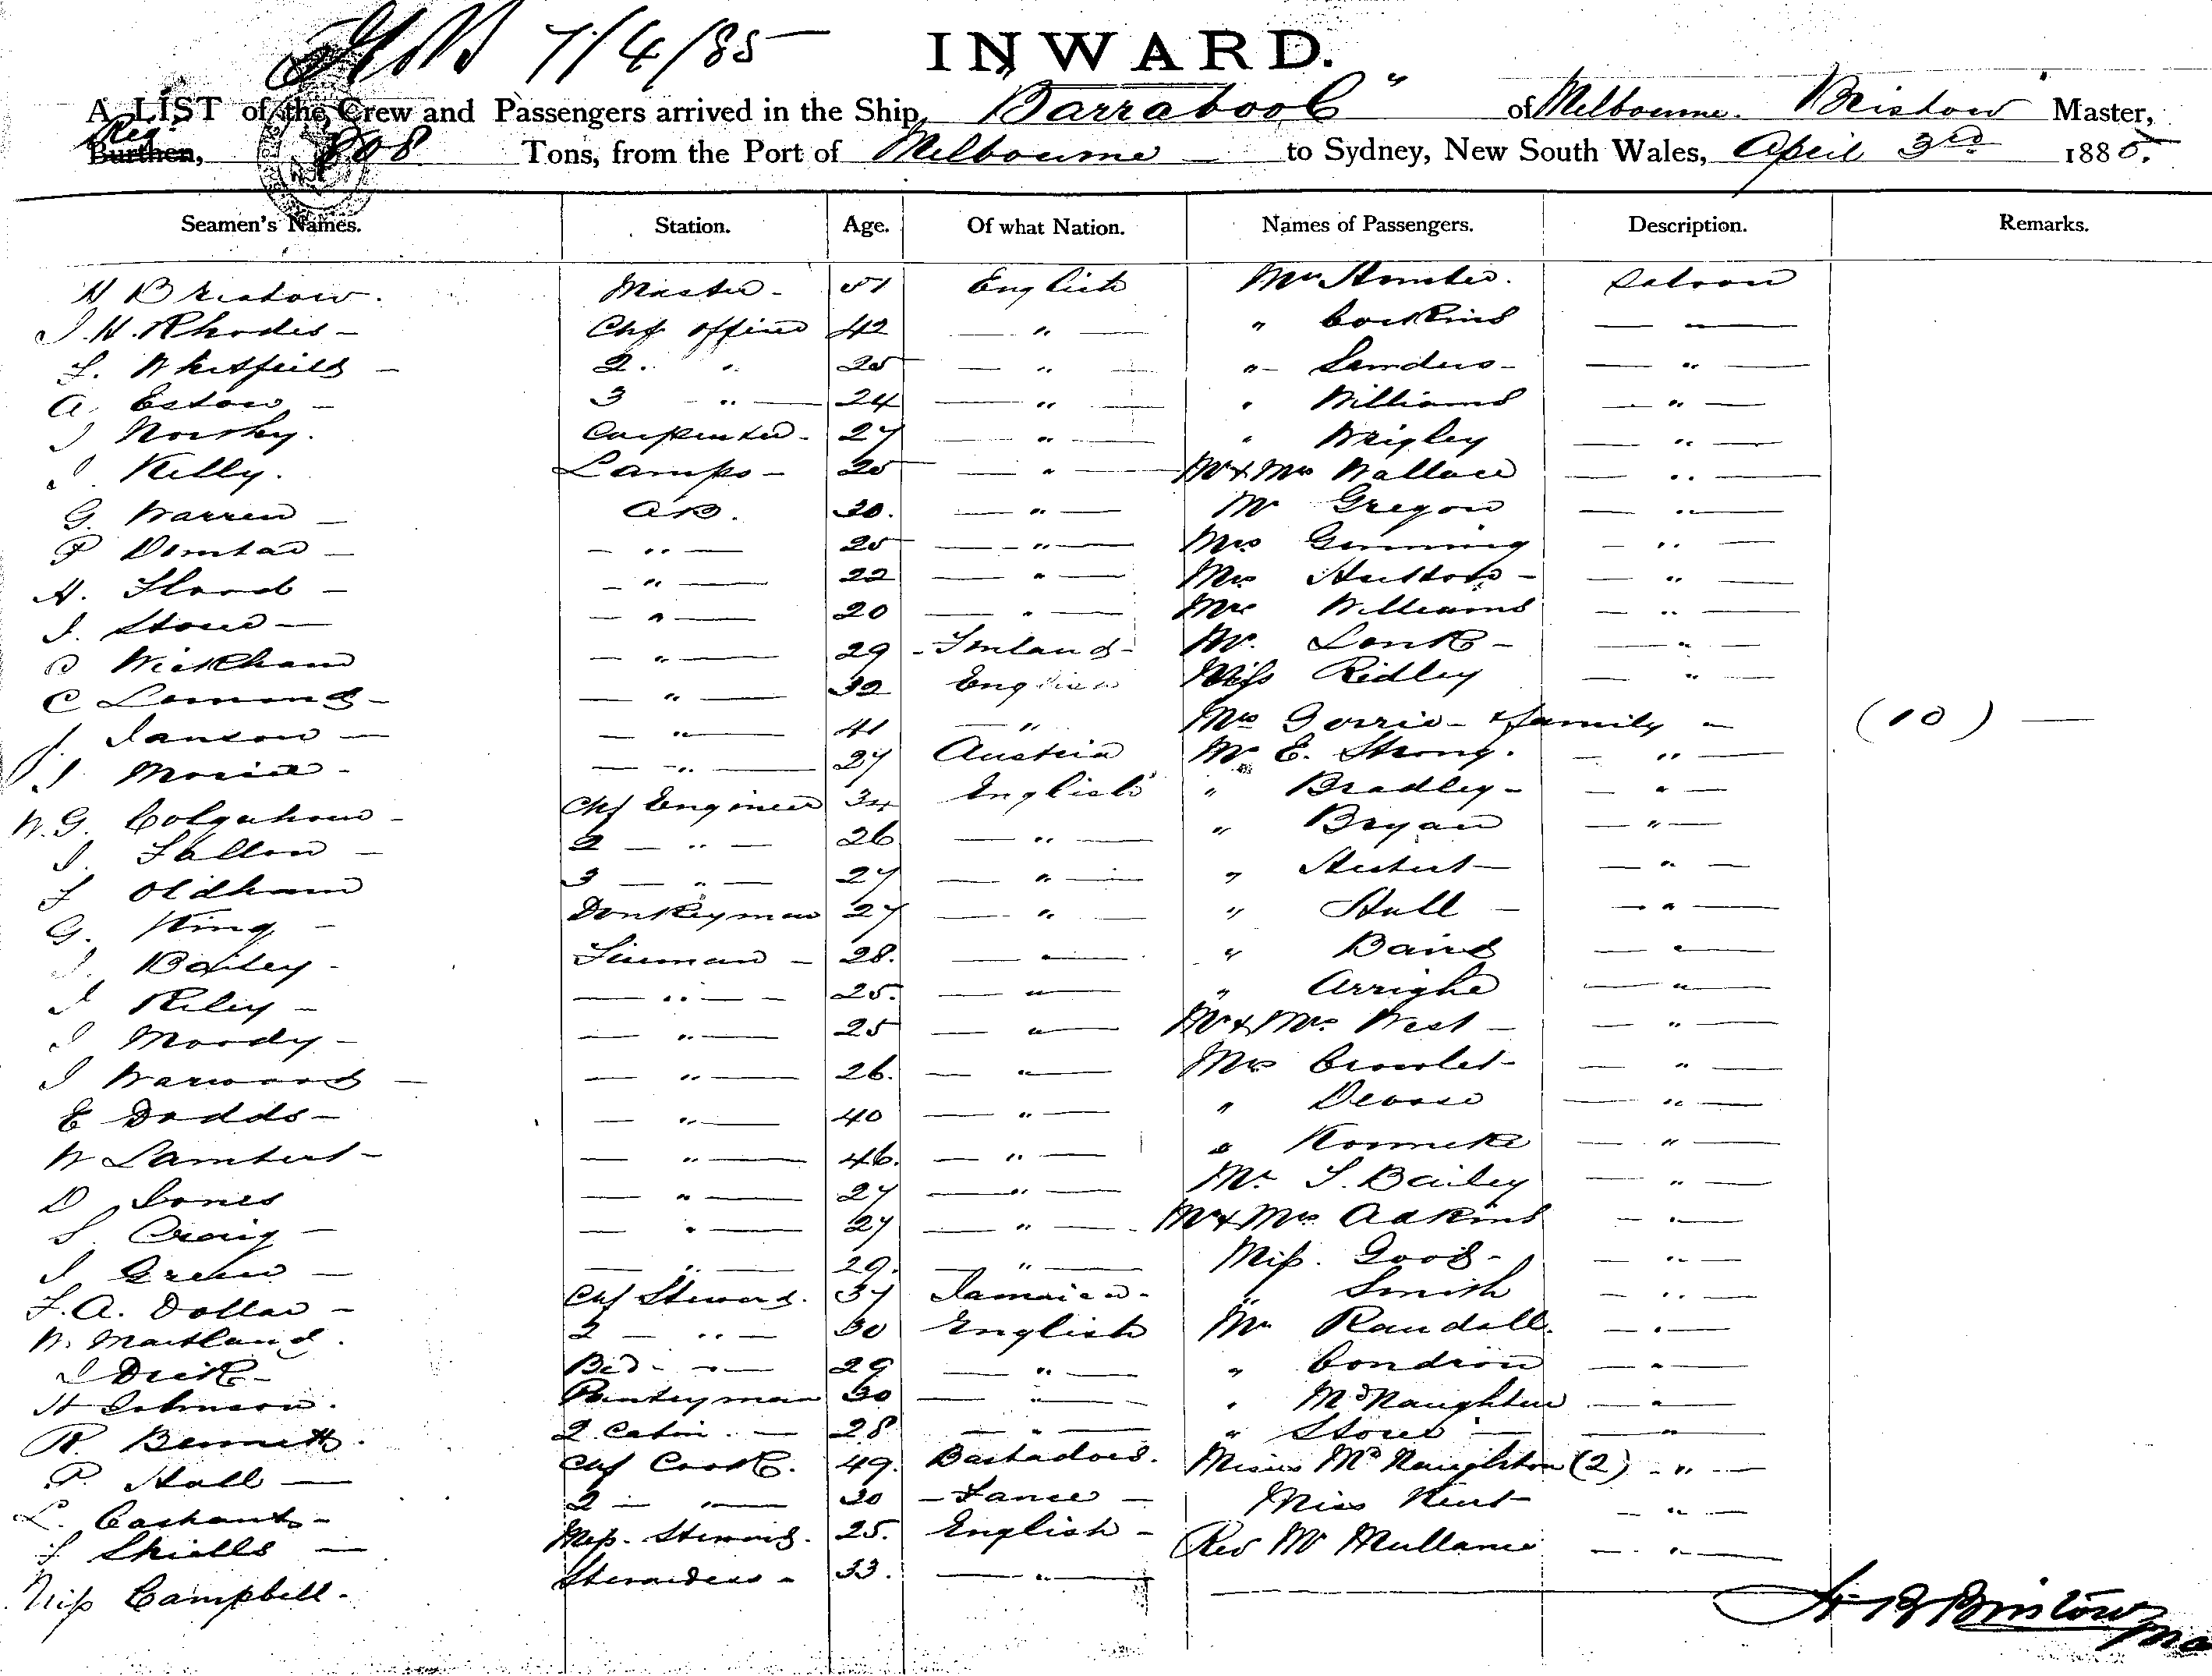 7/4/85
INWARD.
A LIST of the Crew and Passengers arrived in the Ship, "Barrabool" of Melbourne. Bristow Master,
Reg. Burthen, 808 Tons, from the Port of Melbourne to Sydney, New South Wales, April 3rd 1885.
Seamen's Names. Station. Age. Of what Nation. Names of Passengers. Description. Remarks.
H Bristow. Master - 51 English Mr Hunter. Saloon
J. H. Rhodes - Chf officer 42 — " — " — " —
F. Whitfield - 2. " 25 — " — "- Sanders - — " —
A. Estow - 3 - " — 24 — " — " Williams — " —
J Carpenter - 27 — " — " Wrigley — " —
J. Kelly. Lamps - 25 — " — Mr & Mrs Wallace — " —
G. Warren - AB. 30. — " — Mr Gregor — " —
P Dunbar - — " — 25 — " — Mrs — " —
H. Flood - — " — 22 — " — Mrs - — " —
J. Stone - — " — 20 — " — Mrs Williams — " —
Wickham — " — 29 - Finland - Mr. Lonk - — " —
C Lomond - — " — 32 English Miss Ridley — " —
J. Janson - — " — 41 — " Mrs Gorrie - & family " (10) —
J. — " — 27 Austria Mr E. Strong. — " —
W. G. Colquhoun - Chf Engineer 34 English " Bradley - — " —
J. Fallon - 2 — " — 26 — " — " Bryan — " —
F Oldham 3 — " — 27 — " — " Herbert - — " —
G. King - Donkeyman 27 — " — " Hall - — " —
J. Bailey - Fireman - 28. — " — " Baird — " —
J Riley - — " — 25. — " — " Arrighe — " —
J Moody - — " — 25 — " — Mr & Mrs West - — " —
J Warwood - — " — 26. — " — Mrs - — " —
E Dodds - — " — 40 — " — " — " —
W Lambert - — " — 46. — " — " — " —
D Jones — " — 27 — " — Mr. S. Bailey — " —
S. Craig - — " — 27 — " — Mr & Mrs Adkins — " —
J Green - — " — 29. — " — Miss. Good - — " —
F. A. Dollar - Chf Steward. 37 Jamaica - " Smith — " —
W. Maitland. 2 — " — 30 English Mr Randall. — " —
J Dick - Bed - " — 29 — " — " Condron — " —
H Johnson. Pantryman 30 — " — " McNaughton — " —
R. Bennett. 2. Cabin. — 28 — " — " — " —
P. Hall — Chf Cook. 49. Barbadoes. Misses McNaughton (2) - " —
L. 2 — " — 30 - France - Miss Kent - — " —
J Shiells — Mess. Steward. 25. English - Rev Mr Mullane — " —
Miss Campbell. Stewardess - 33. — " —
H B Bristow